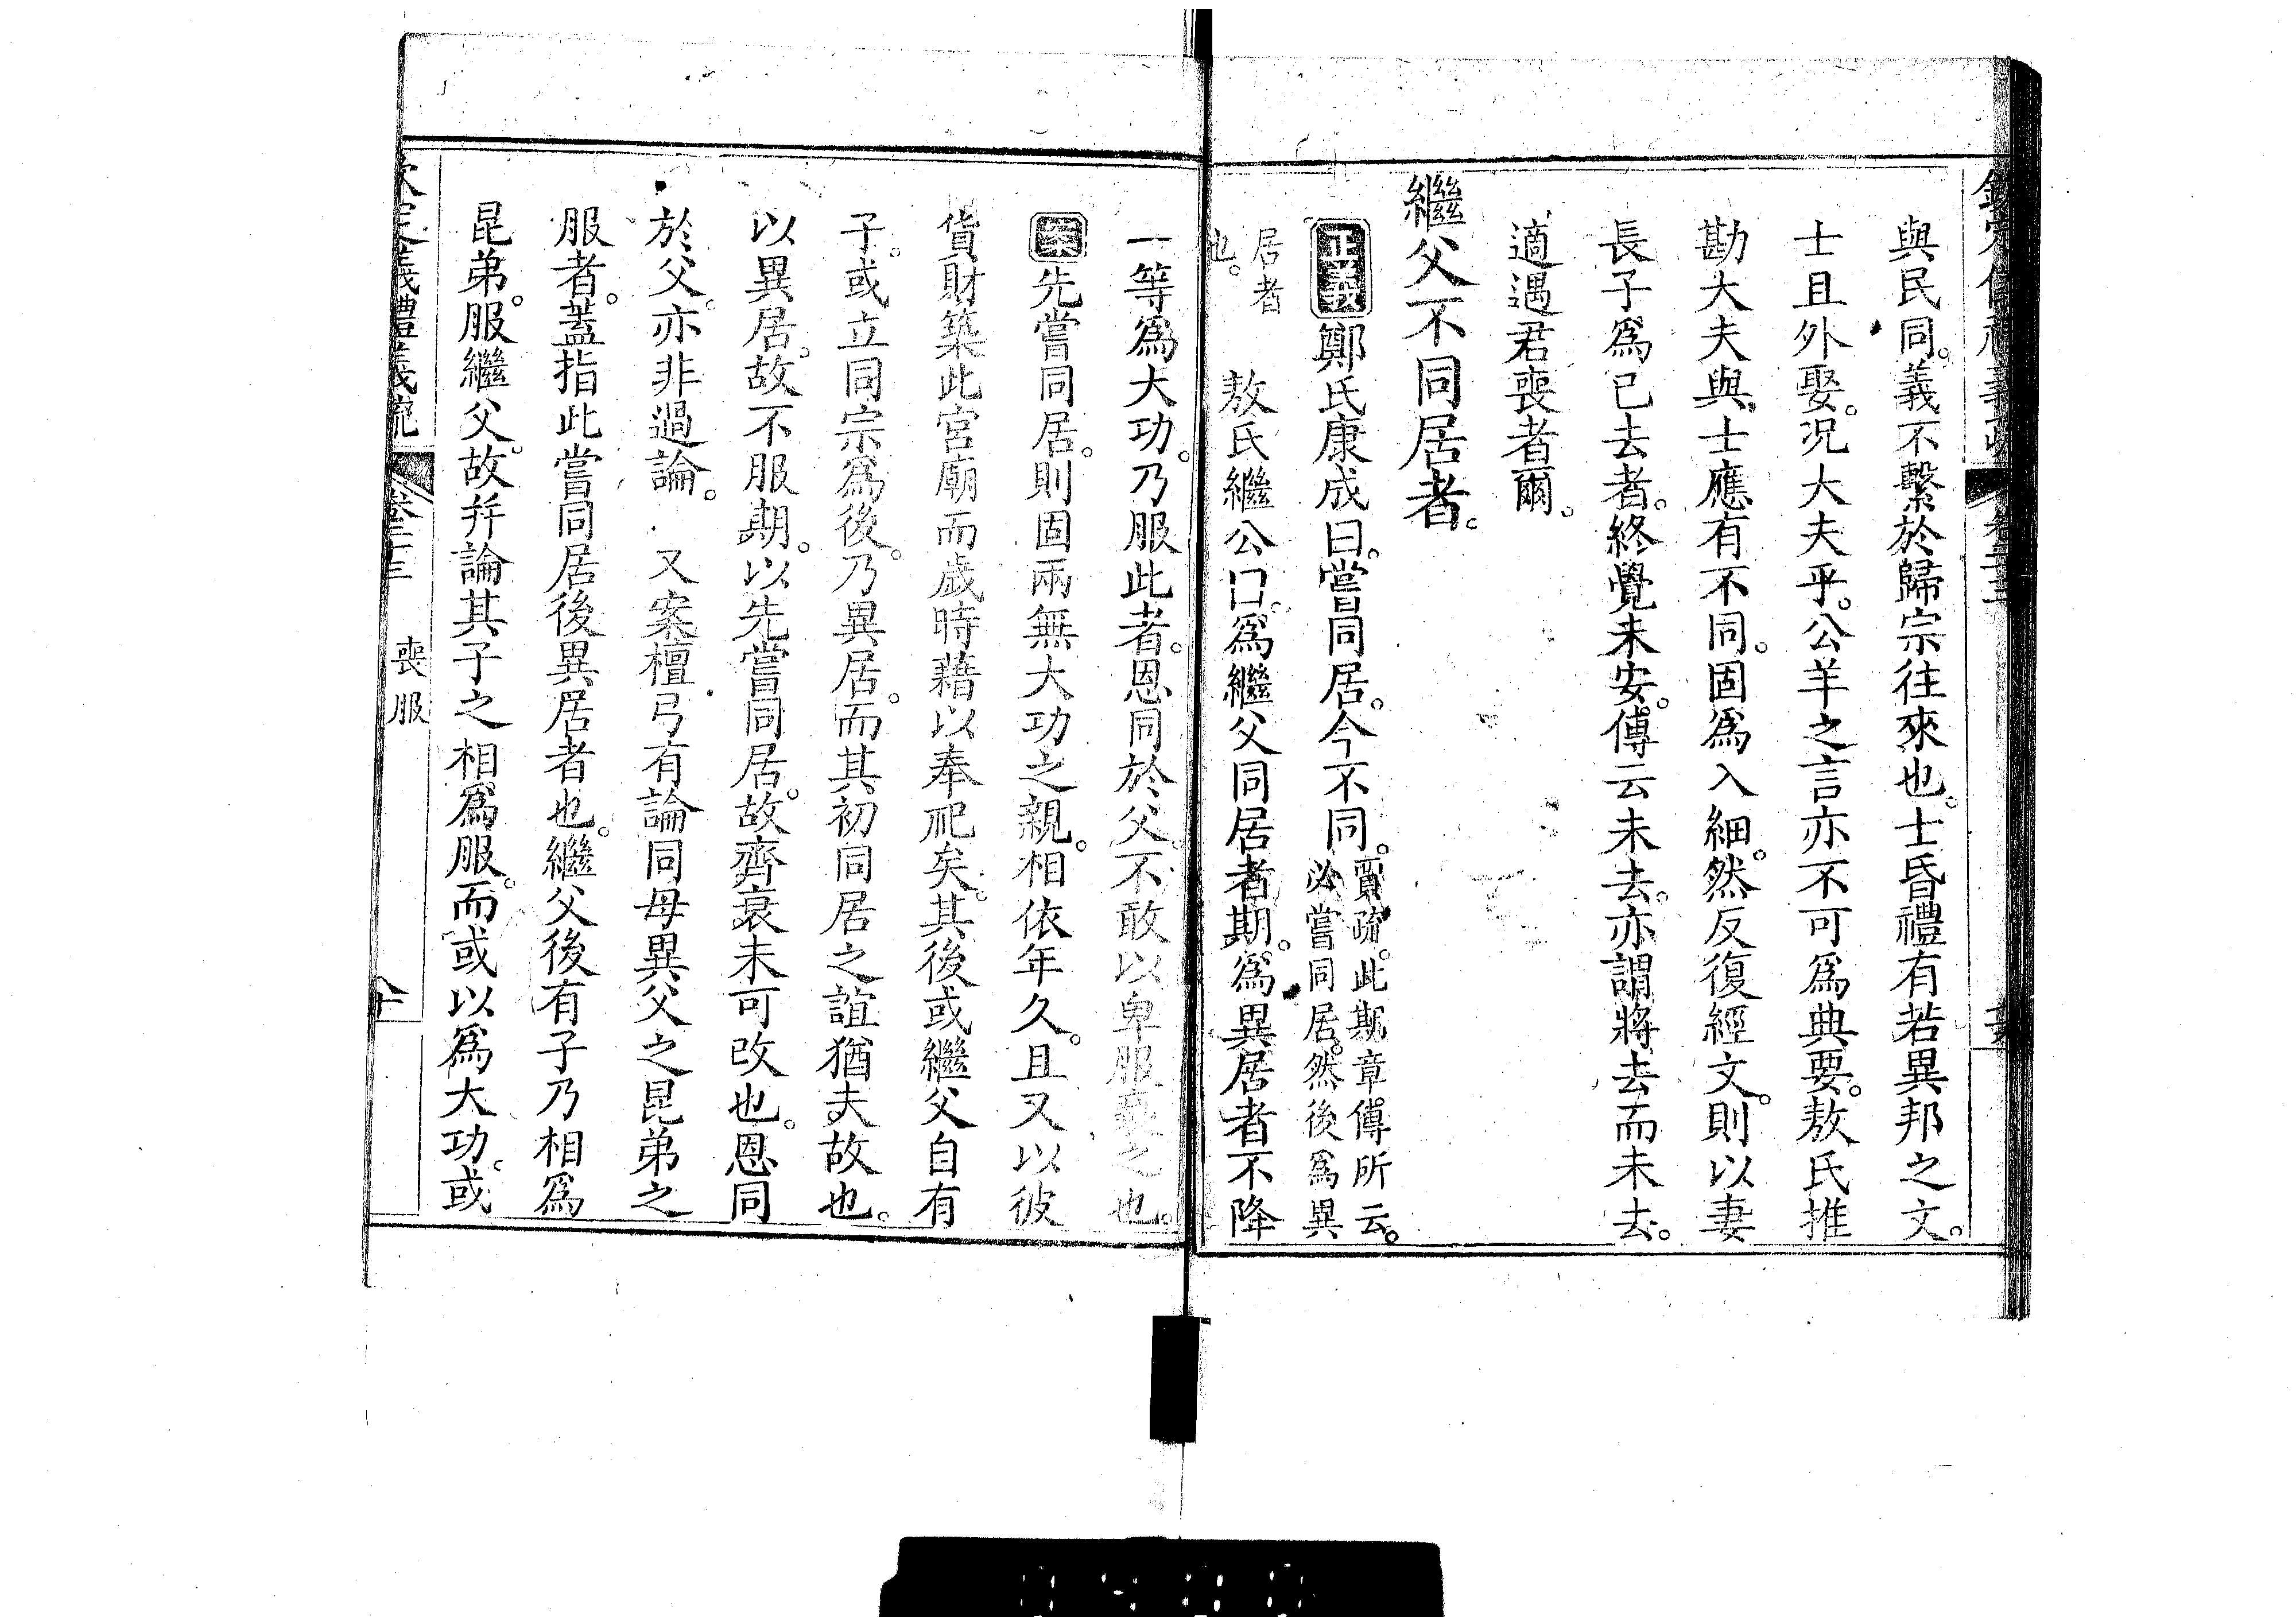 與民同。義不繫於歸宗往來也。士昏禮有若異邦之文。
士且外娶。況大夫乎。公羊之言亦不可為典要。敖氏推
勘大夫與士應有不同。固為入細。然反復經文。則以妻
長子為已去者。終覺未安。傳云未去。亦謂將去而未去。
適遇君喪者爾。
繼父不同居者。
正義鄭氏康成曰。嘗同居。今不同。賈疏。此期章傳所云。
必嘗同居。然後為異
居者
也。敖氏繼公曰。為繼父同居者期。為異居者不降
一等為大功。乃服此者。恩同於父。不敢以卑服褻之也。
案先嘗同居。則固兩無大功之親。相依年久。且又以彼
貨財築此宮廟而歲時藉以奉祀矣。其後或繼父自有
子。或立同宗為後。乃異居。而其初同居之誼猶夫故也。
以異居。故不服期。以先嘗同居。故齊衰未可改也。恩同
於父。亦非過論。 又案檀弓有論同母異父之昆弟之
服者。蓋指此嘗同居後異居者也。繼父後有子乃相為
昆弟。服繼父。故并論其子之相為服。而或以為大功。或
義禮義疏
喪服